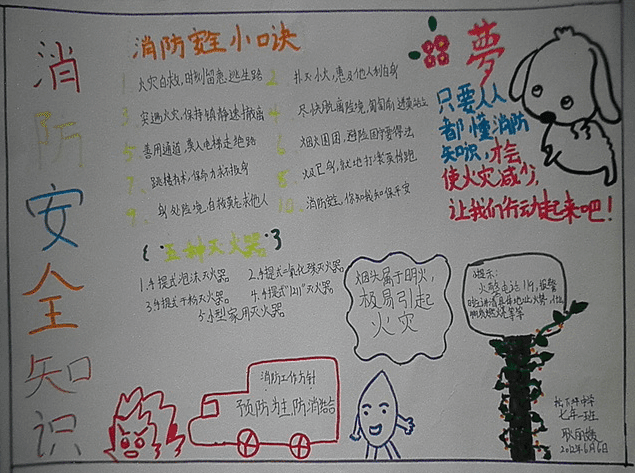 消防安全知识
消防安全小口诀
1. 火灾自救,时刻留意,逃生路
2. 扑灭小火,惠及他人利自身
3. 突遇火灾,保持镇静速撤离
4. 尽快脱离险境,
5. 善用通道,莫入电梯走绝路
6. 烟火围困,避险固守要得法
7. 跳楼有术,保命力求
8. 火已及身,就地打滚莫惊跑
9. 身处险境,自救莫忘救他人
10. 消防安全,你知我知保平安
五种灭火器
1.手提式泡沫灭火器
2.手提式二氧化碳灭火器
3.手提式干粉灭火器
4.手提式"1211"灭火器
5.小型家用灭火器
烟头属于明火,
极易引起
火灾
梦
只要人人
都懂消防
知识,才会
使火灾减少,
让我们行动起来吧!
提示:
火警电话119,报警
时讲清具体地址
燃烧等等
消防工作方针
预防为主防消结合
中学
七年一班
2012年6月6日